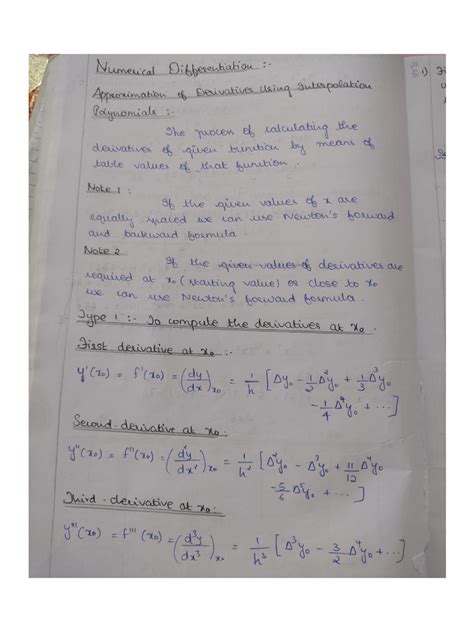 Numerical Differentiation :-
Approximation of Derivatives Using Interpolation
Polynomials :-
The process of calculating the
derivatives of given function by means of
table values of that function.
Note 1 :
If the given values of x are
equally spaced we can use Newton's forward
and backward formula.
Note 2
If the given values of derivatives are
required at x₀ (starting value) or close to x₀
we can use Newton's forward formula.
Type 1 :- To compute the derivatives at x₀.
First derivative at x₀ :-
y'(x₀) = f'(x₀) = (dy/dx)ₓ₀ = 1/h [Δy₀ - 1/2 Δ²y₀ + 1/3 Δ³y₀
- 1/4 Δ⁴y₀ + ...]
Second derivative at x₀:
y''(x₀) = f''(x₀) = (d²y/dx²)ₓ₀ = 1/h² [Δ²y₀ - Δ³y₀ + 11/12 Δ⁴y₀
- 5/6 Δ⁵y₀ + ...]
Third derivative at x₀:
y'''(x₀) = f'''(x₀) = (d³y/dx³)ₓ₀ = 1/h³ [Δ³y₀ - 3/2 Δ⁴y₀ + ...]
1)